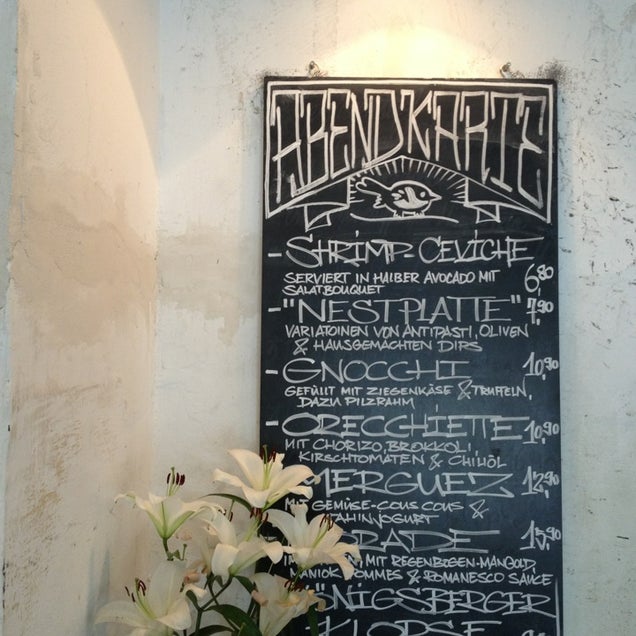 ABENDKARTE
- SHRIMP-CEVICHE
SERVIERT IN HALBER AVOCADO MIT 6,80
SALATBOUQUET
- "NESTPLATTE" 7,90
VARIATOINEN VON ANTIPASTI, OLIVEN
& HAUSGEMACHTEN DIPS
- GNOCCHI 10,90
GEFÜLLT MIT ZIEGENKÄSE & TRÜFFELN,
DAZU PILZRAHM
- ORECCHIETTE 10,90
MIT CHORIZO, BROKKOLI,
KIRSCHTOMATEN & CHILIÖL
MERGUEZ 12,90
MIT GEMÜSE-COUS COUS &
TAHINYOGURT
RADE 15,90
MIT REGENBOGEN-MANGOLD,
MANIOK POMMES & ROMANESCO SAUCE
ÖNIGSBERGER
KLOPSE